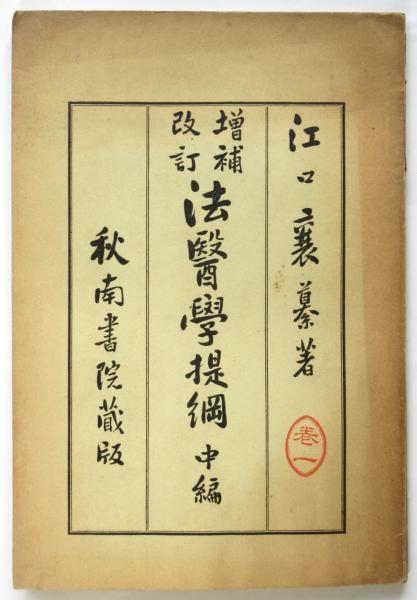 江口襄纂著
卷一
增補
改訂
法醫學提綱 中編
秋南書院蔵版